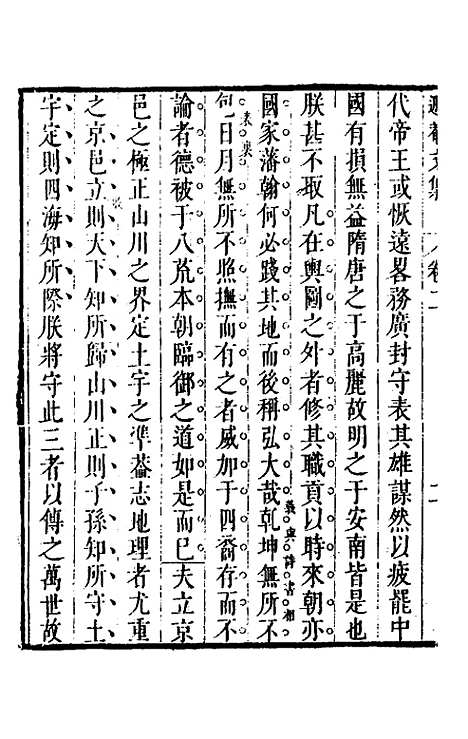 代帝王或恢遠畧務廣封守表其雄謀然以疲罷中
國有損無益隋唐之于高麗故明之于安南皆是也
朕甚不取凡在輿圖之外者修其職貢以時來朝亦
國家藩翰何必踐其地而後稱弘大哉乾坤無所不
包日月無所不照撫而有之者威加于四裔存而不
論者德被于八荒本朝臨御之道如是而已夫立京
邑之極正山川之界定土宇之準葢志地理者尤重
之京邑立則天下知所歸山川正則子孫知所守土
宇定則四海知所際朕將守此三者以傳之萬世故